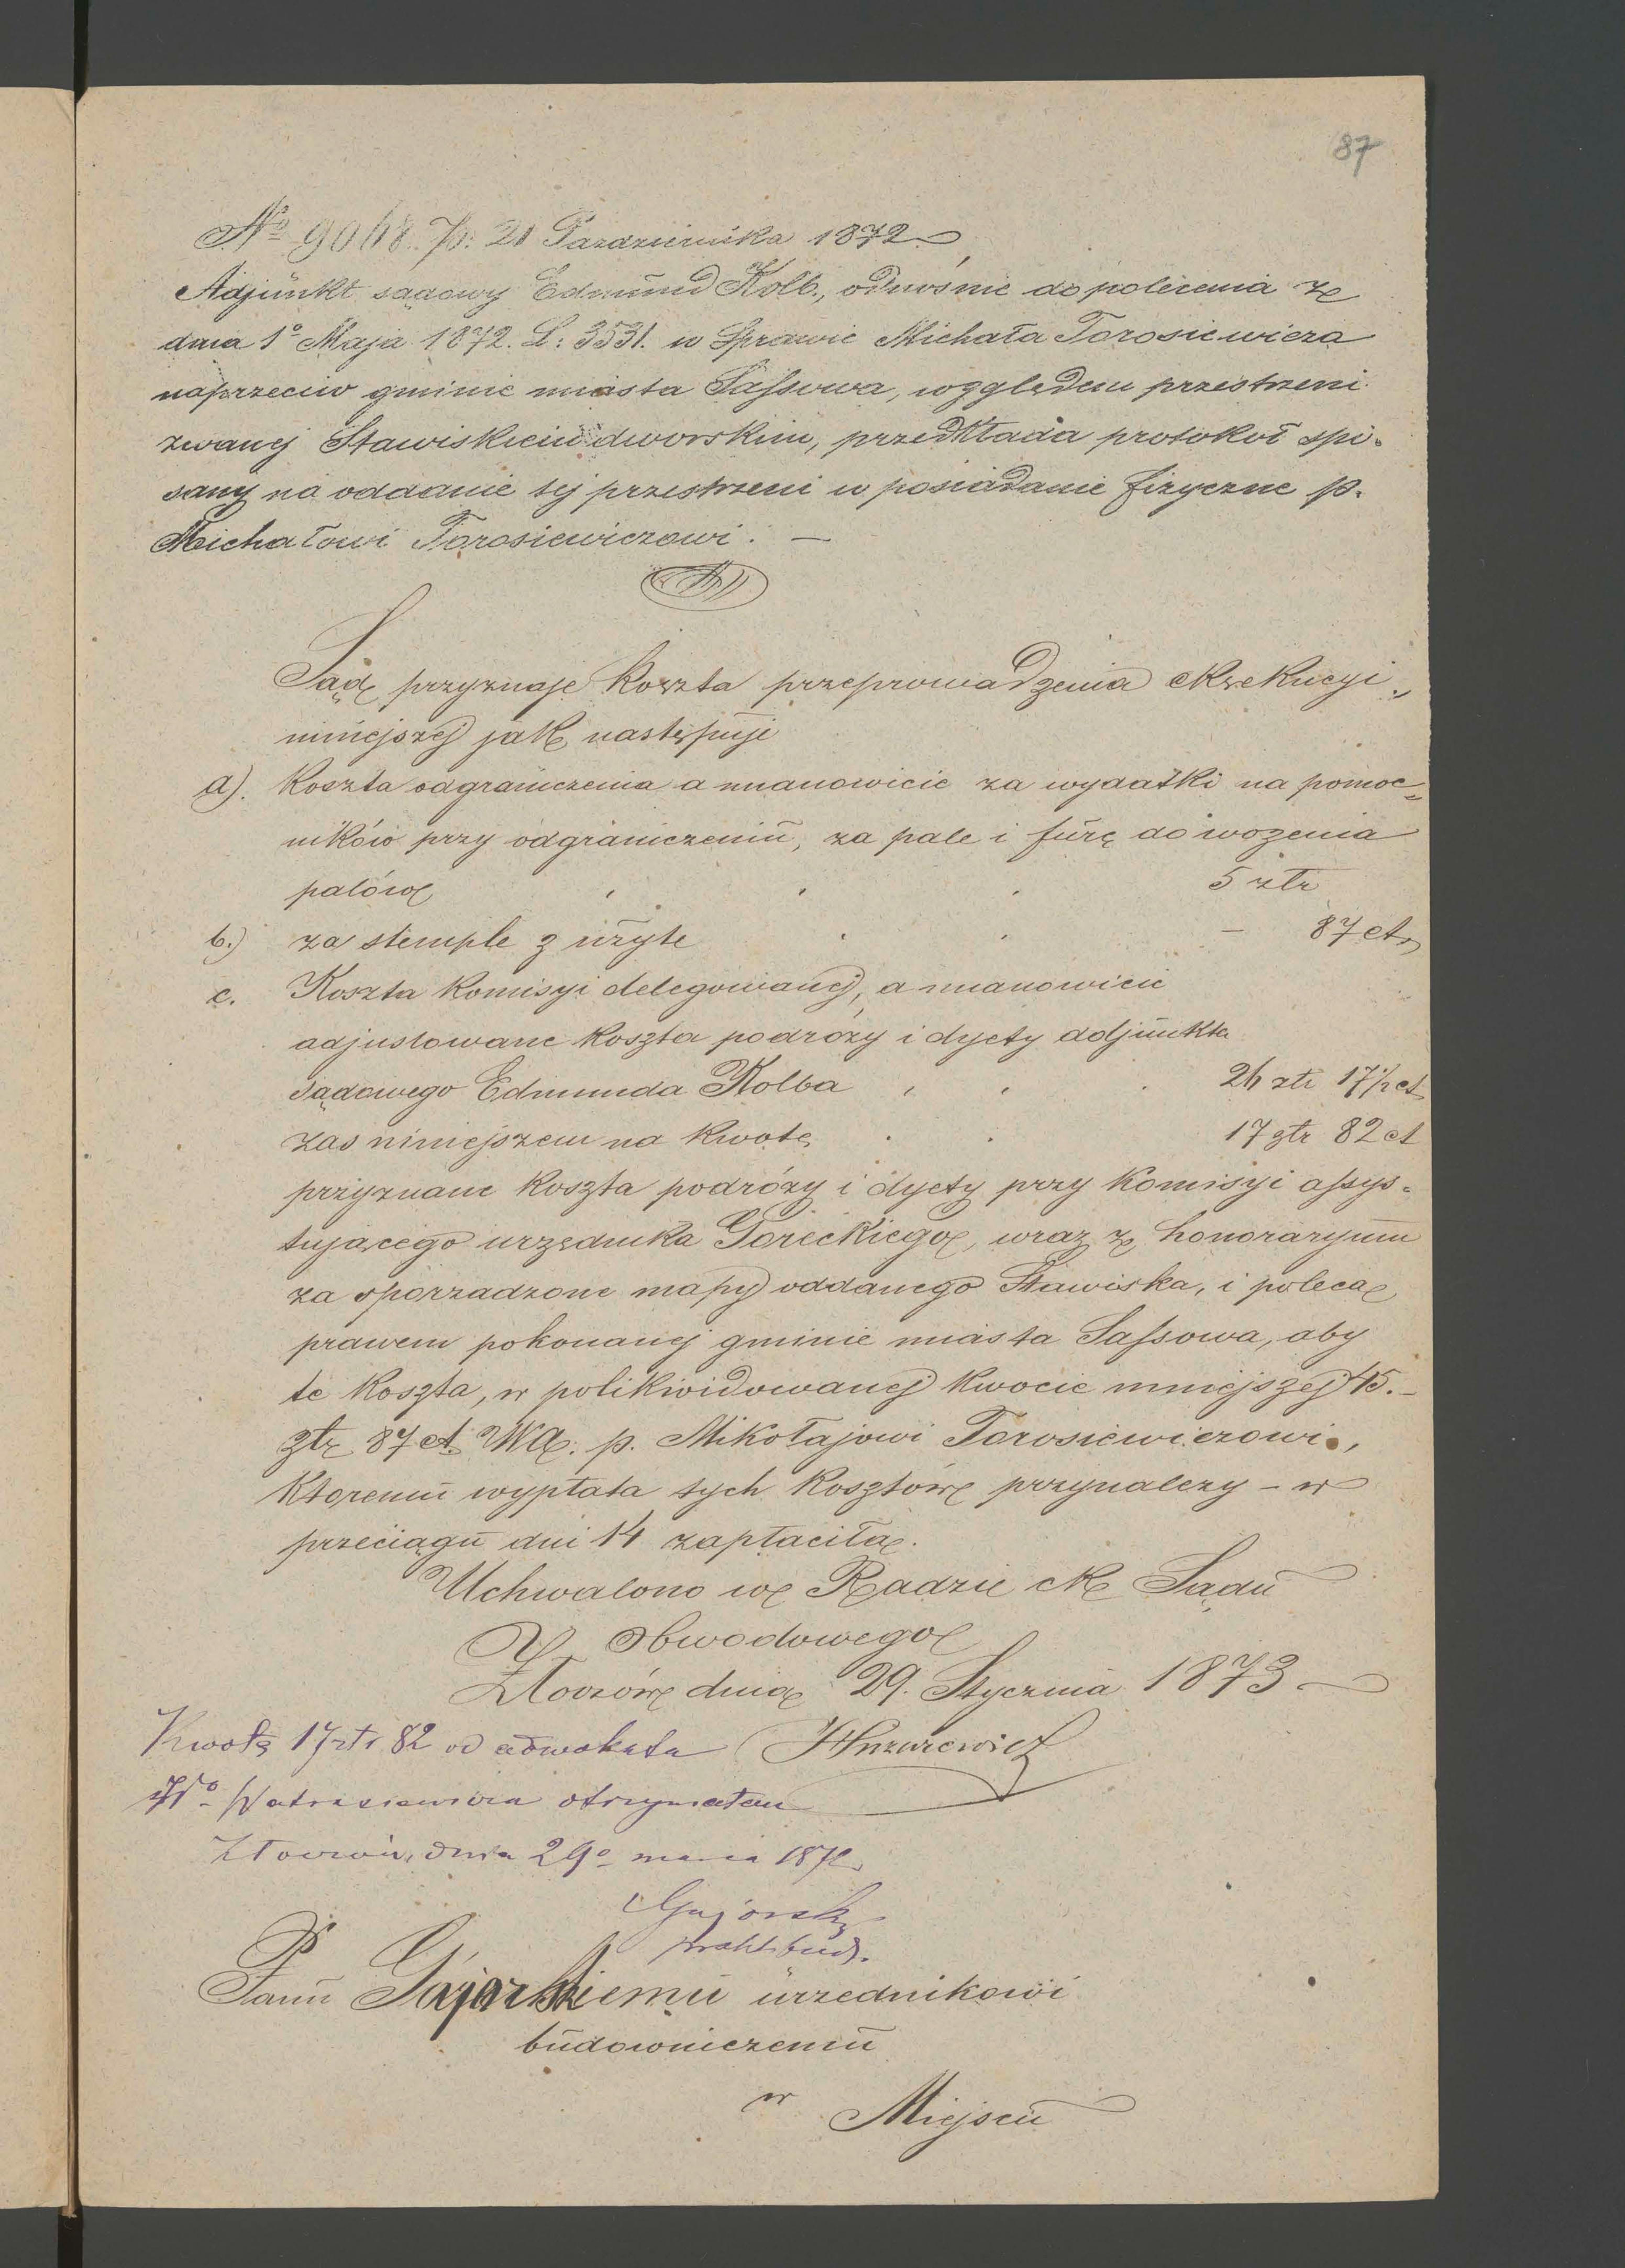 87
No 9048. Pr: 21 Pazdziernika 1872
Adjunkt sądowy Edmund Kolb., odnośnie do polecenia ze
dnia 1o Maja 1872. L: 3531. w Sprawie Michała Torosiewicza
naprzeciw gminie miasta Sassowa, względem przestrzeni
zwanej Stawiskiem dworskim, przedkłada protokoł spi-
sany na oddanie tej przestrzeni w posiadanie fizyczne p.
Michałowi Torosiewiczowi. —
Sąd przyznaje koszta przeprowadzenia ekzekucyi
niniejszej jak następuje
a). Koszta odgraniczenia a mianowicie za wydatki na pomoc-
ników przy odgraniczeniu, za pale i furę do wożenia
palów 5 złr
b.) za stemple zużyte — 87 ct
c. Koszta komisyi delegowanej, a mianowicie
adjustowane koszta podróży i dyety adjunkta
sądowego Edmunda Kolba 24 złr 17 1/2 ct
zas niniejszem na kwotę 17 złr 82 ct
przyznane koszta podróży i dyety przy komisyi assys-
tującego urzędnika Goreckiego, wraz z honoraryum
za sporządzone mapy oddanego Stawiska, i poleca
prawem pokonanej gminie miasta Sassowa, aby
te koszta, w polikwidowanej kwocie mniejszej 45.-
złr 87 ct WA. p. Mikołajowi Torosiewiczowi,
ktoremu wypłata tych kosztów przynalezy - w
przeciągu dni 14 zapłaciła.
Uchwalono w Radzie ck Sądu
Obwodowego
Złoczów dnia 29. Stycznia 1873
Kwotę 17 złr 82 od adwokata
otrzymałem
Złoczów, dnia 29o 187
Gajorski
prakt. bud.
Panu Gajorskiemu urzednikowi
budowniczemu
w Miejscu